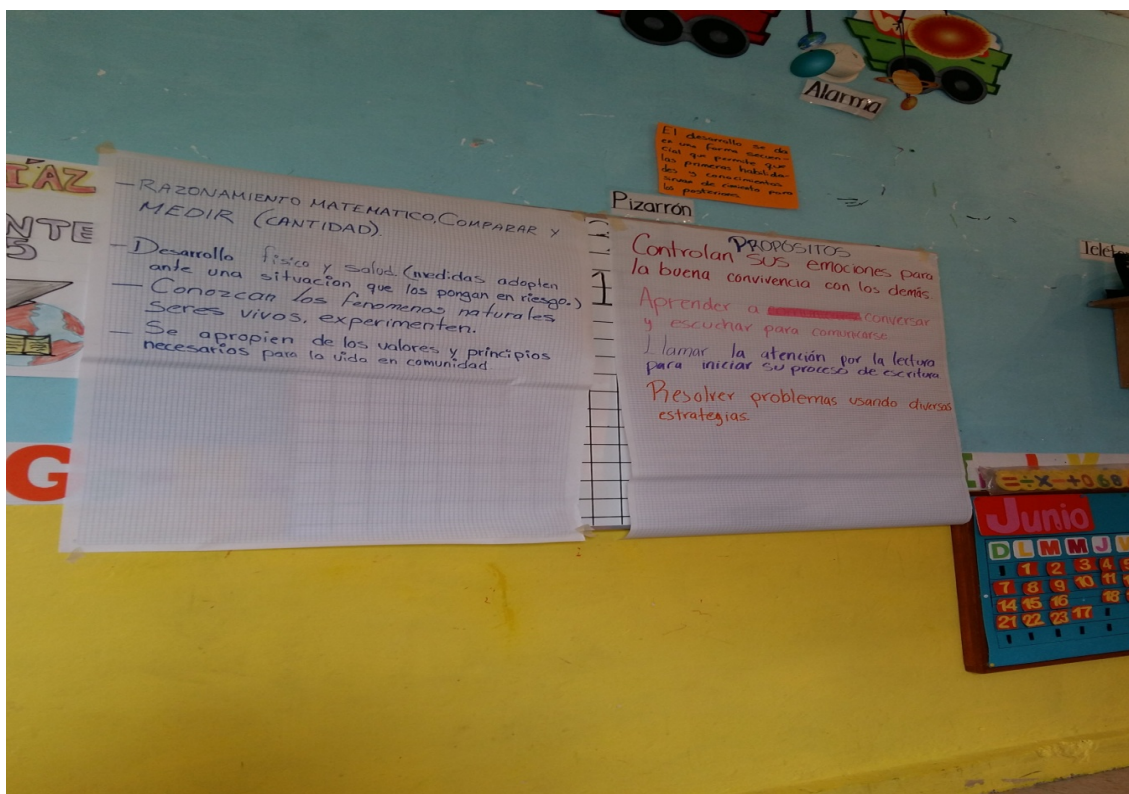 Alarma
El desarrollo se da
en una forma secuen-
cial que permite que
las primeras habilida-
des y conocimientos
sirvan de cimiento para
los posteriores
Pizarrón
ÍAZ
NTE
5
- RAZONAMIENTO MATEMATICO, COMPARAR Y
MEDIR (CANTIDAD).
- Desarrollo físico y salud. (medidas adopten
ante una situación que los pongan en riesgo.)
- Conozcan los fenomenos naturales,
seres vivos, experimenten.
- Se apropien de los valores y principios
necesarios para la vida en comunidad
PROPÓSITOS
Controlan sus emociones para
la buena convivencia con los demás.
Aprender a conversar
y escuchar para comunicarse
Llamar la atención por la lectura
para iniciar su proceso de escritura
Resolver problemas usando diversas
estrategias.
Teléf
G
= ÷ x - + 0 6 8
Junio
D L M M J V
1 2 3 4 5
7 8 9 10 11
14 15 16 18
21 22 23 17